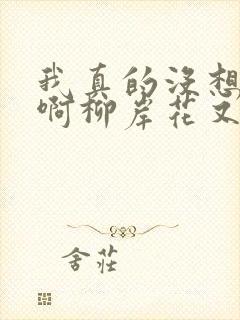 我真的没想
啊柳岸花又
舍莊